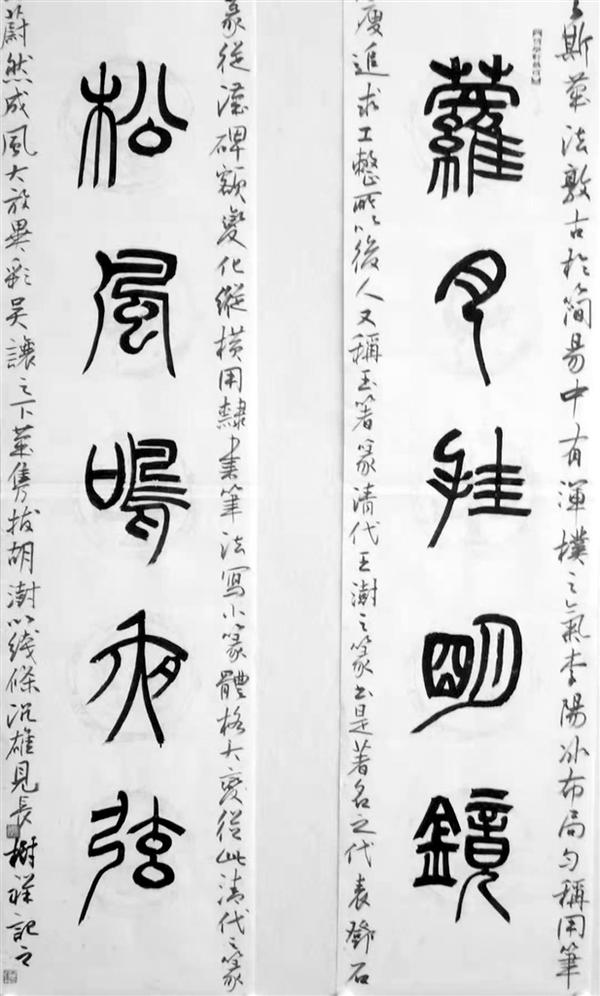 斯笔法敦古於簡易中有渾樸之氣李陽冰布局勻稱用筆
蘿月挂明鏡
瘦追求工整所以後人又稱玉箸篆清代王澍之篆書是著名之代表鄧石
篆從漢碑額變化縱橫用隸書筆法寫小篆體格大變從此清代之篆
松風鳴夜弦
蔚然成風大放異彩吴讓之下筆雋拔胡澍以綫條沉雄見長樹祥記之